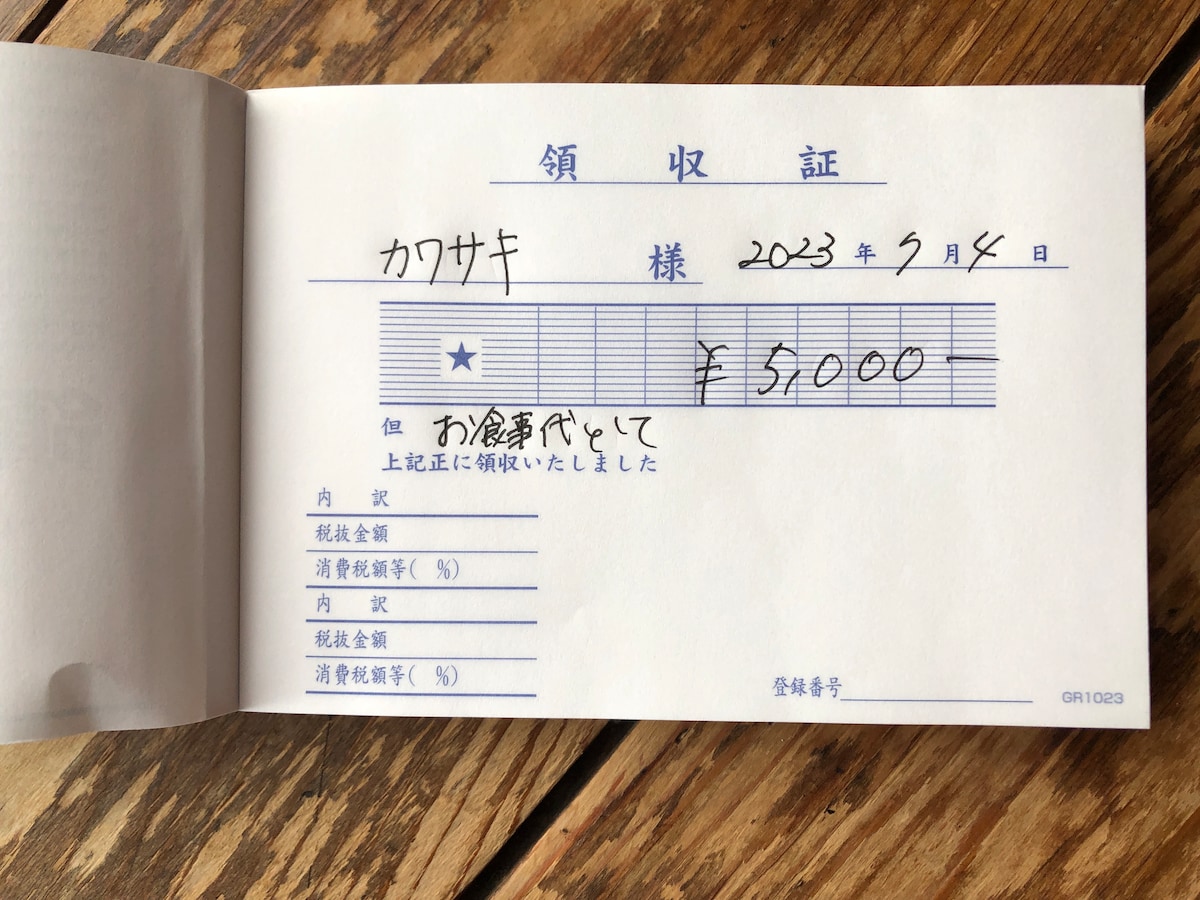 領収証
カワサキ 様 2023年7月4日
★ ¥5,000-
但 お食事代として
上記正に領収いたしました
内訳
税抜金額
消費税額等( %)
内訳
税抜金額
消費税額等( %)
登録番号 GR1023